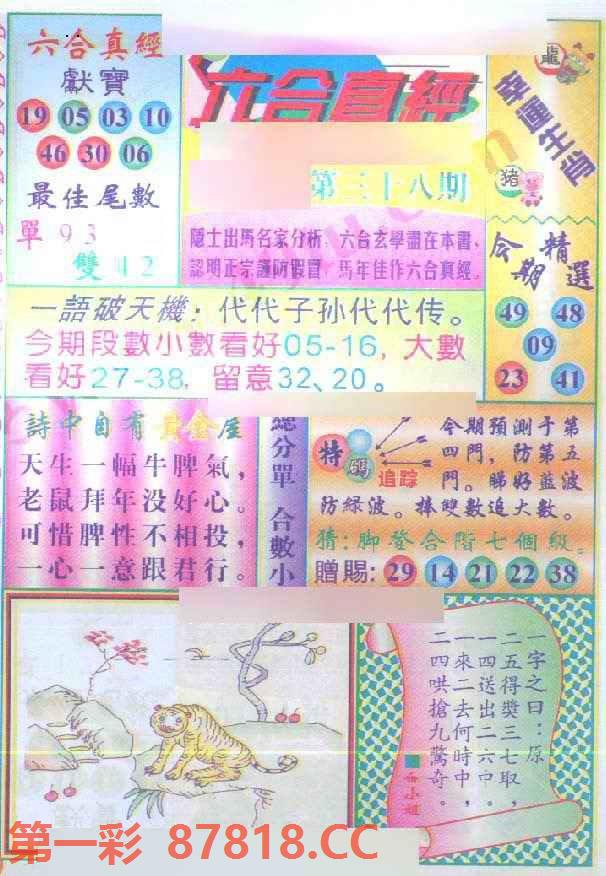 六合真經
獻寶
19 05 03 10
46 30 06
最佳尾數
單 93
雙 42
六合真經
第三十八期
隱士出馬名家分析，六合玄學盡在本書、
認明正宗謹防假冒，馬年佳作六合真經。
龍
幸運生肖
豬
今期精選
49 48
09
23 41
一語破天機：代代子孙代代传。
今期段數小數看好05-16，大數
看好27-38，留意32、20。
詩中自有黃金屋
天生一幅牛脾氣，
老鼠拜年没好心。
可惜脾性不相投，
一心一意跟君行。
總分單 合數小
特碼
追踪
今期預測于第
四門，防第五
門。睇好藍波
防緑波。捧雙數追大數。
猜：脚登合階七個級。
贈賜：29 14 21 22 38
一字之曰：原
二五得獎三七取，
一四送出二六中。
一來二去何時中，
二四哄搶九驚奇。
小姐
第一彩 87818.CC